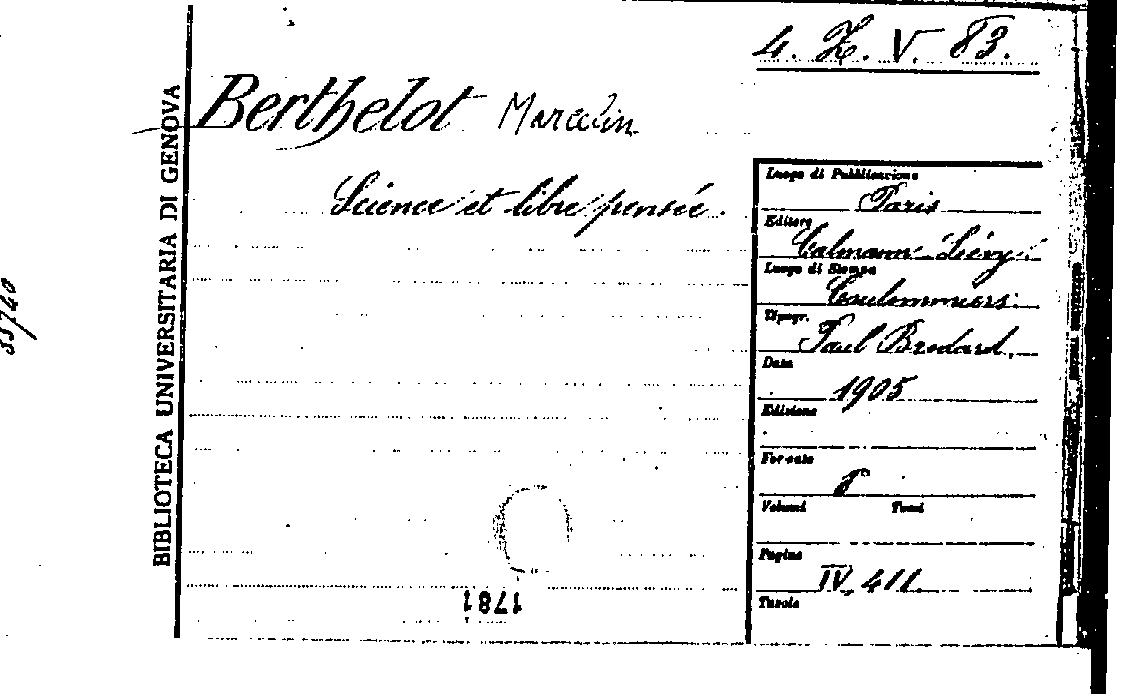 4. Z. V. 83.
Berthelot Marcelin
Science et libre pensée.
BIBLIOTECA UNIVERSITARIA DI GENOVA
Luogo di Pubblicazione
Paris
Editore
Calmann-Lévy.
Luogo di Stampa
Coulommiers.
Tipogr.
Paul Brodard.
Data
1905
Edizione
Formato
8°
Volumi Tomi
Pagine
IV, 411.
Tavole
1781